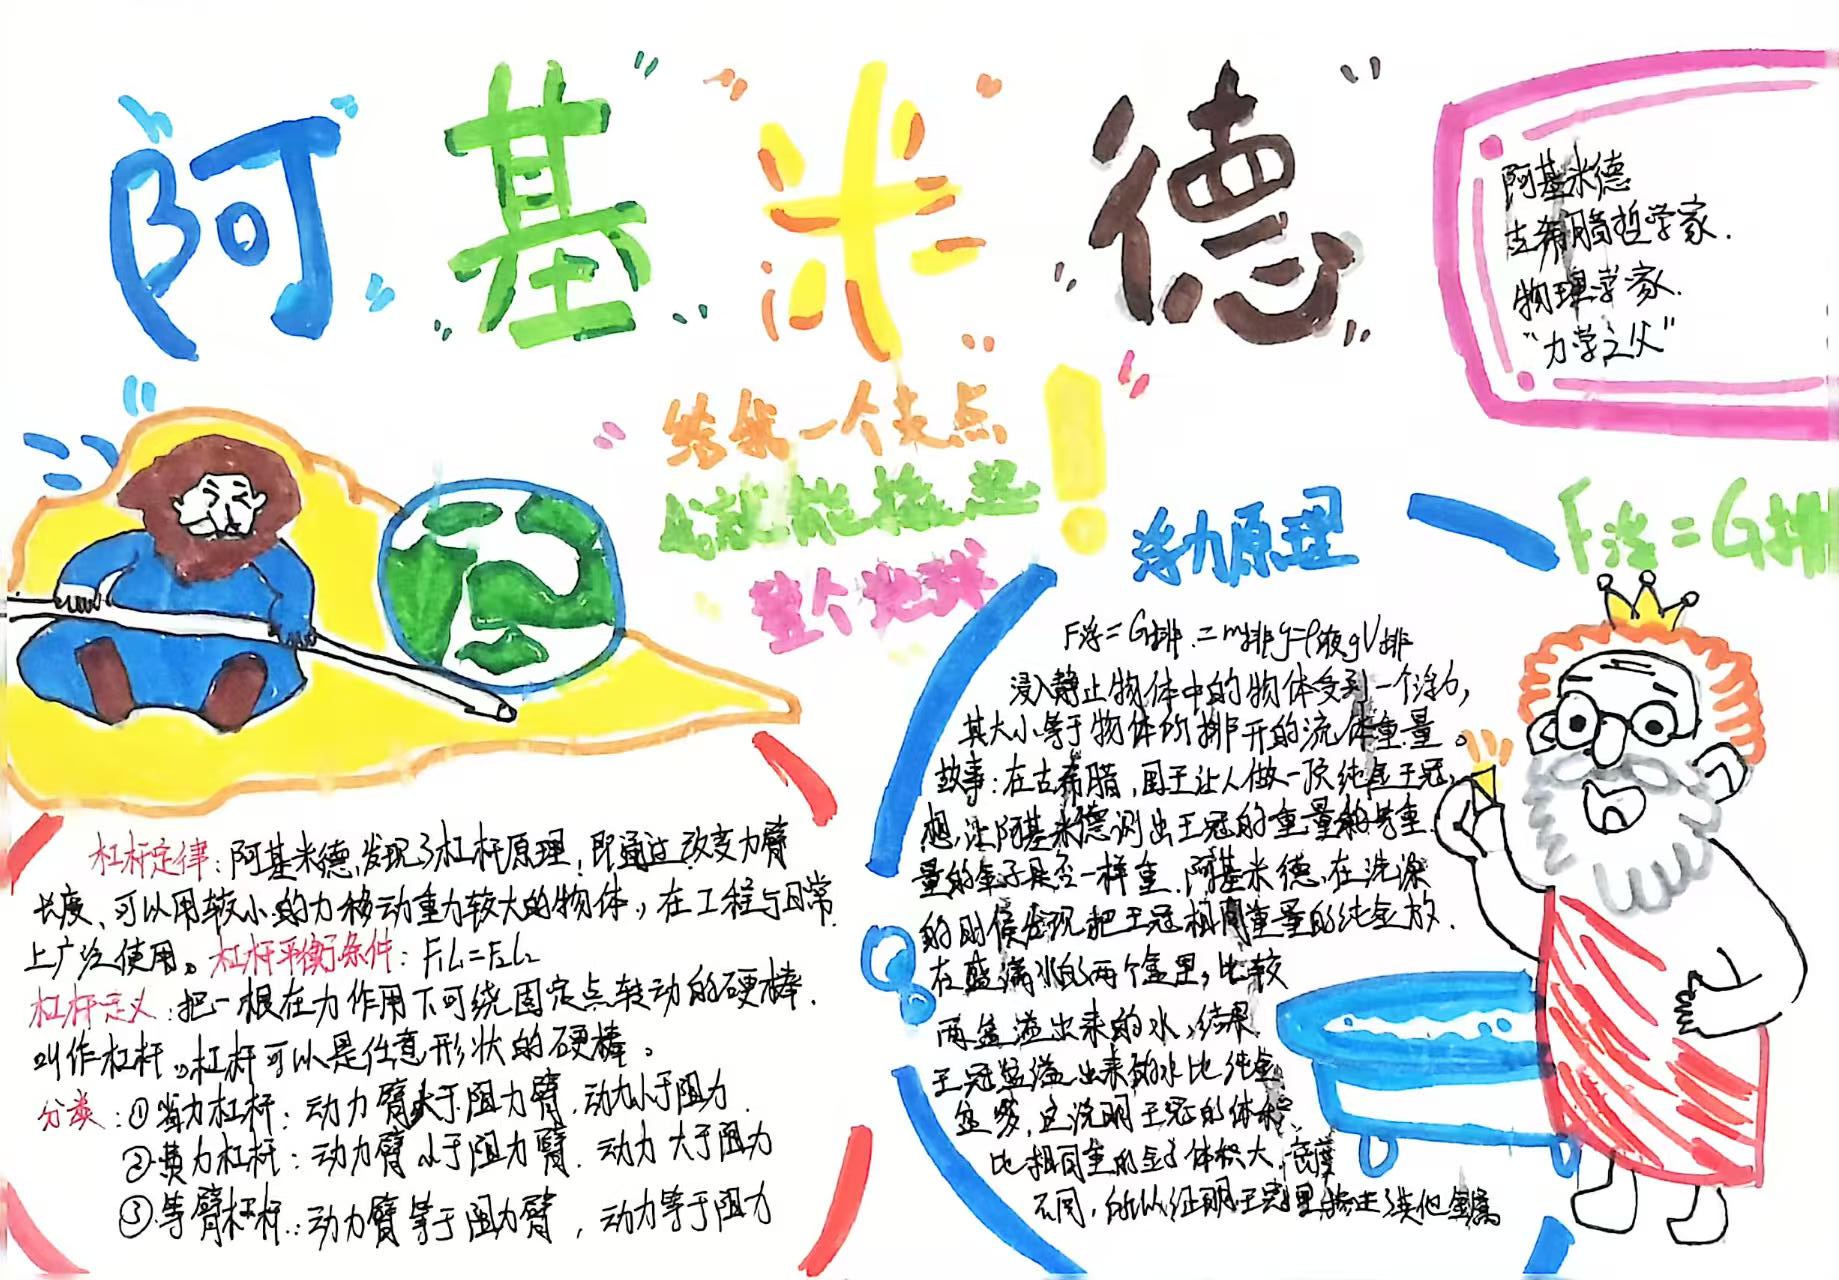 阿基米德
阿基米德
古希腊哲学家.
物理学家.
“力学之父”
给我一个支点
我就能撬起
整个地球
!
杠杆定律:阿基米德,发现了杠杆原理,即通过改变力臂
长度、可以用较小的力移动重力较大的物体,在工程与日常
上广泛使用。杠杆平衡条件:F₁L₁=F₂L₂
杠杆定义:把一根在力作用下可绕固定点转动的硬棒.
叫作杠杆。杠杆可以是任意形状的硬棒。
分类:①省力杠杆:动力臂大于阻力臂,动力小于阻力.
②费力杠杆:动力臂小于阻力臂.动力大于阻力
③等臂杠杆:动力臂等于阻力臂,动力等于阻力
浮力原理
F浮=G排
F浮=G排.=m排g=ρ液gV排
浸入静止物体中的物体受到一个浮力,
其大小等于物体所排开的流体重量。
故事:在古希腊,国王让人做一顶纯金王冠,
想让阿基米德测出王冠的重量和与重
量的金子是否一样重.阿基米德,在洗澡
的时候发现把王冠相同重量的纯金放.
在盛满水的两个盆里,比较
两盆溢出来的水,结果
王冠盆溢出来的水比纯金
盆多,这说明王冠的体积
比相同重的金子体积大,密度
不同,所以证明王冠里掺进了其他金属